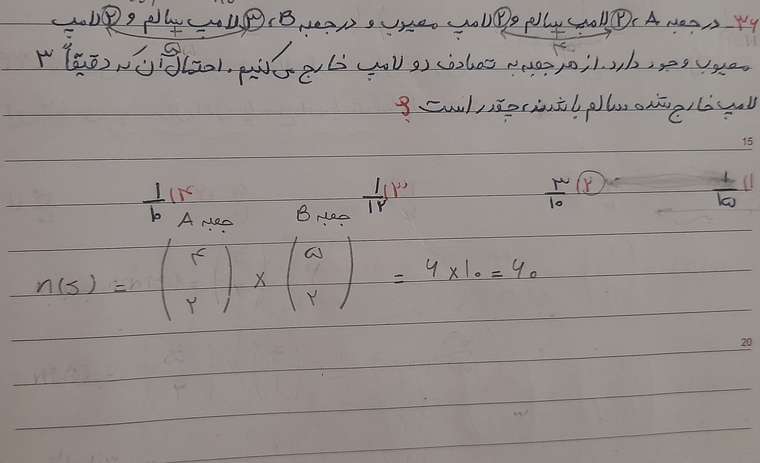 ۳۶- در جعبه A، ۲ لامپ سالم و ۲ لامپ معیوب و در جعبه B، ۳ لامپ سالم و ۲ لامپ
معیوب وجود دارد. از هر جعبه به تصادف دو لامپ خارج می‌کنیم. احتمال آن که دقیقاً ۳
لامپ خارج شده سالم باشند، چقدر است؟
15
۱) ۱/۱۵ ۲) ۳/۱۰ ۳) ۱/۱۲ ۴) ۱/۱۰
جعبه A جعبه B
n(s) = (۴ ۲) × (۵ ۲) = ۶ × ۱۰ = ۶۰
20